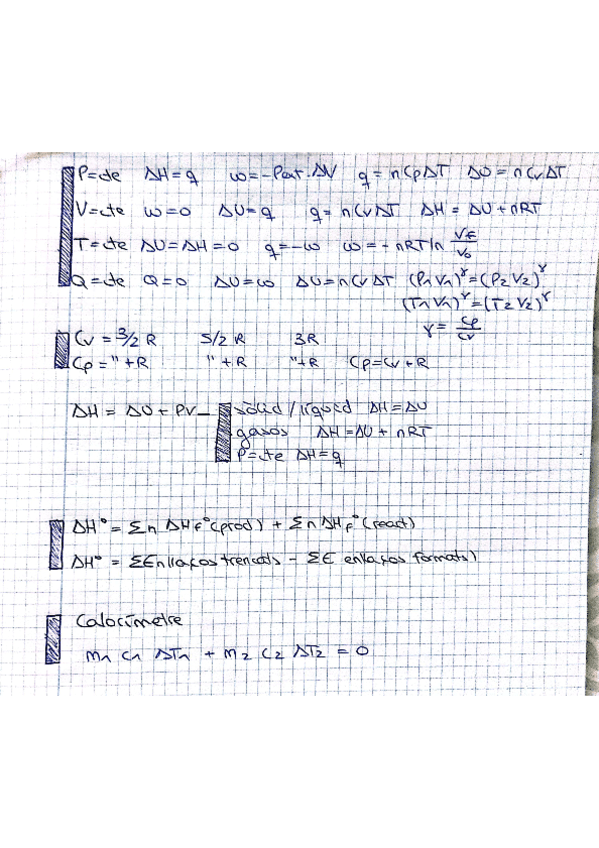 P=cte ΔH=q ω=-Pext.ΔV q=nCpΔT ΔU=nCvΔT
V=cte ω=0 ΔU=q q=nCvΔT ΔH=ΔU+nRT
T=cte ΔU=ΔH=0 q=-ω ω=-nRTln Vf/V0
Q=cte Q=0 ΔU=ω ΔU=nCvΔT (P1V1)^γ=(P2V2)^γ
(T1V1)^γ=(T2V2)^γ
γ=Cp/Cv
Cv=3/2R 5/2R 3R
Cp="+R "+R "+R Cp=Cv+R
ΔH=ΔU+PV sòlid/líquid ΔH=ΔU
gasos ΔH=ΔU+nRT
P=cte ΔH=q
ΔH°=Σn ΔHf°(prod)+Σn ΔHf°(react)
ΔH°=ΣEnllaços trencats - ΣE enllaços formats)
Calorímetre
m1 c1 ΔT1 + m2 c2 ΔT2 = 0